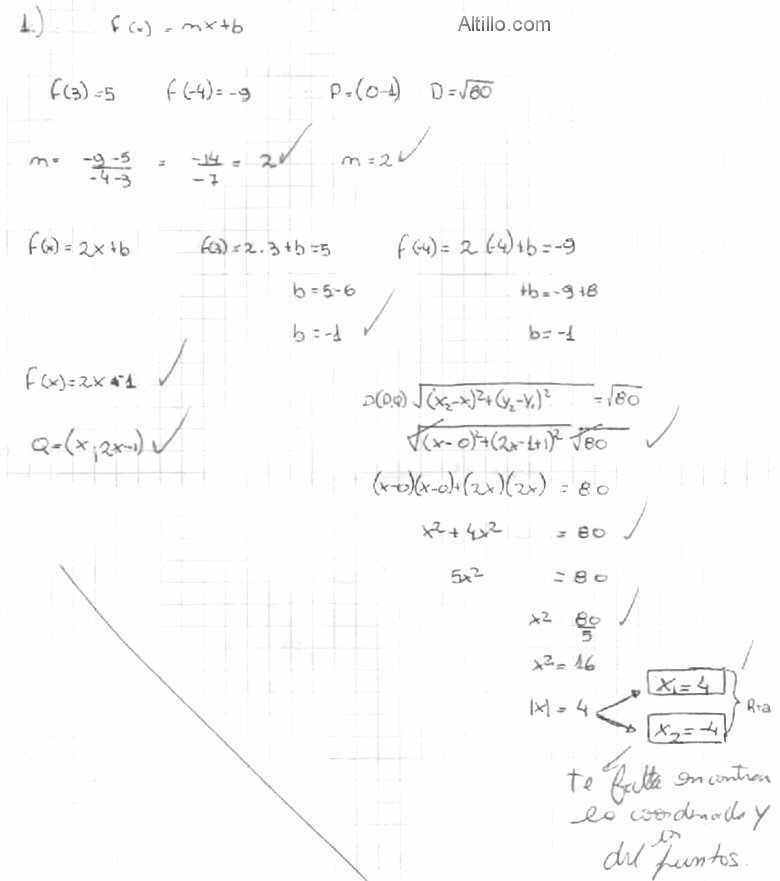 1.) f(x) = mx+b Altillo.com
f(3)=5 f(-4)=-9 P=(0-1) D=√80
m= -9-5/-4-3 = -14/-7 = 2 ✓ m=2 ✓
f(x)=2x+b f(3)=2.3+b=5 f(-4)=2(-4)+b=-9
b=5-6 +b=-9+8
b=-1 ✓ b=-1
f(x)=2x-1 ✓
D(P,Q) √(x₂-x)²+(y₂-y₁)² =√80
Q=(x,2x-1) ✓
√(x-0)²+(2x-1+1)² √80 ✓
(x-0)(x-0)+(2x)(2x) = 80
x²+4x² = 80 ✓
5x² = 80
x² 80/5 ✓
x²=16
|x|=4
x₁=4
x₂=-4
Rta
te falta encontrar
la coordenada y
de los puntos.